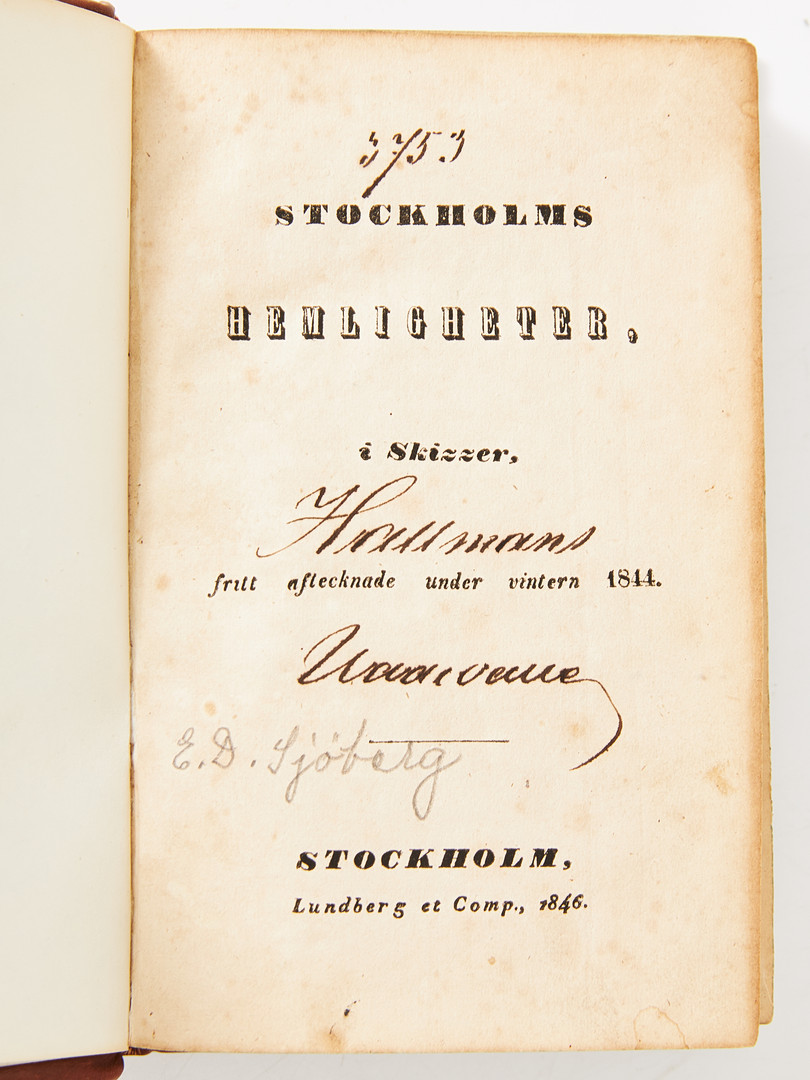 3753
STOCKHOLMS
HEMLIGHETER,
i Skizzer,
Hallmans
fritt aftecknade under vintern 1844.
E. D. Sjöberg
STOCKHOLM,
Lundberg et Comp., 1846.